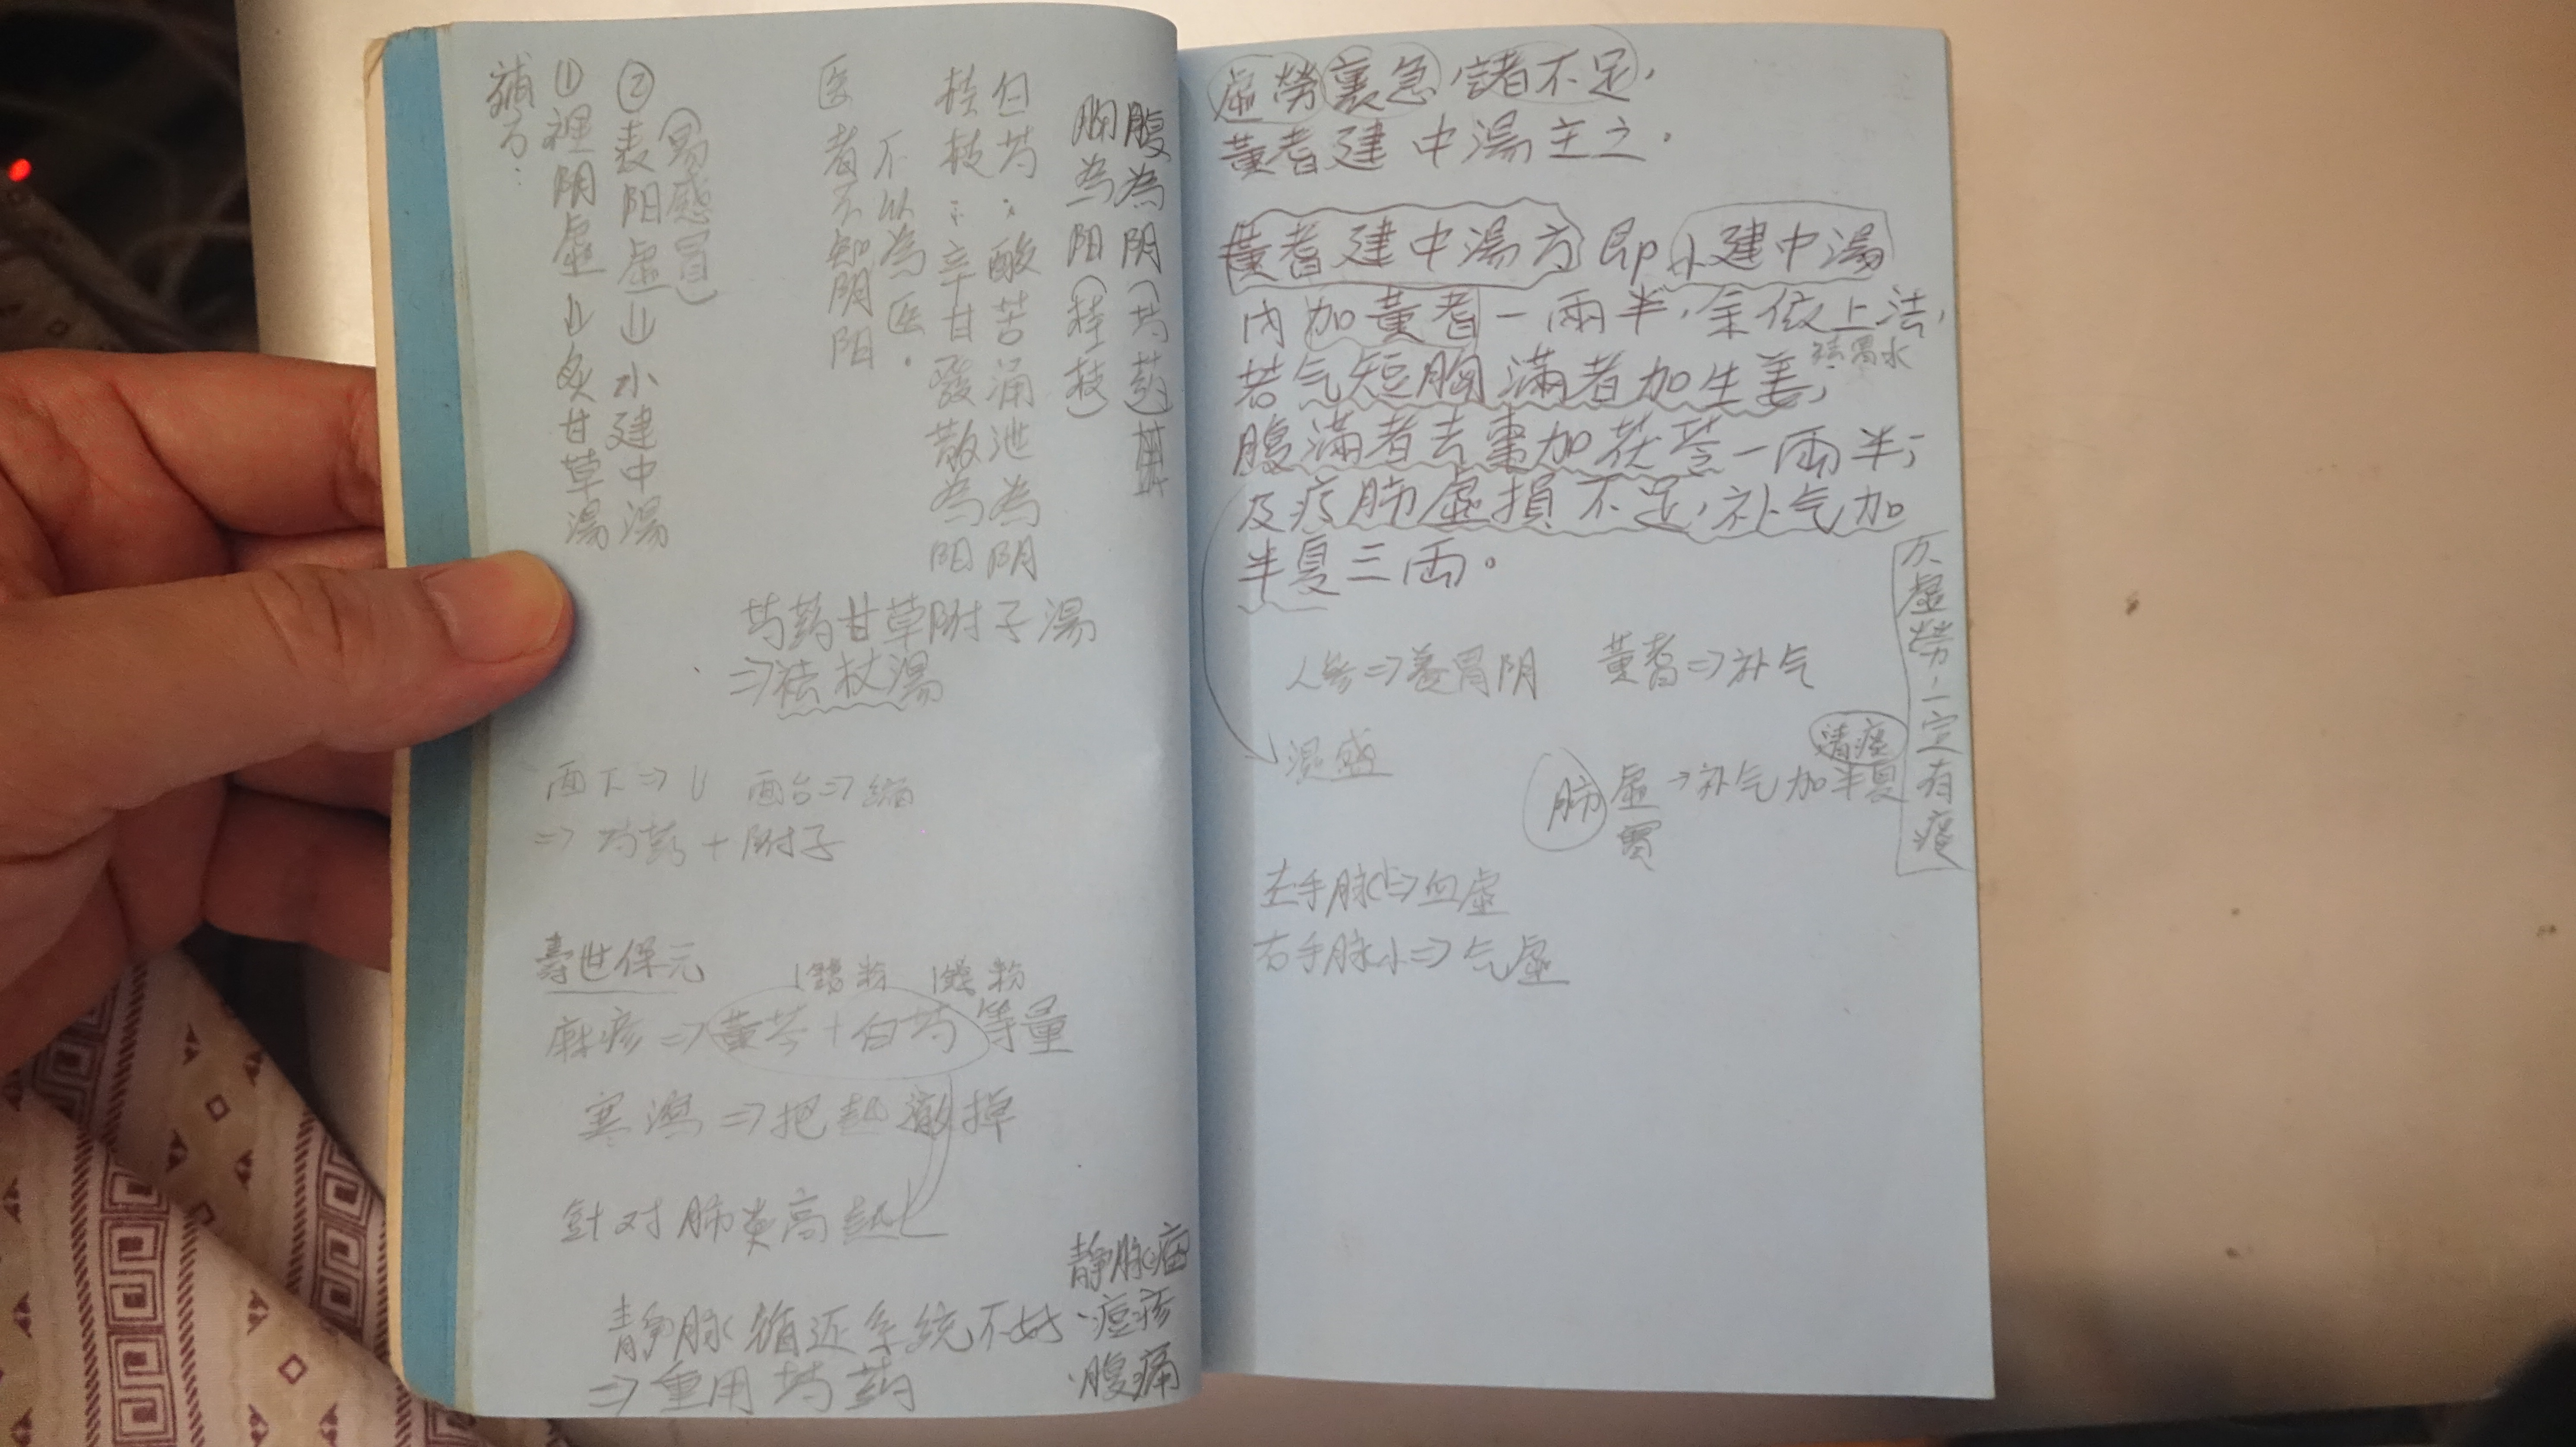 腹為阴(芍药)
胸為阳(桂枝)
白芍：酸苦涌泄為阴
桂枝：辛甘發散為阳
医者不知阴阳
不以為医。
(易感冒)
②表阳虛⇒小建中湯
①裡阴虛⇒炙甘草湯
補方：
芍药甘草附子湯
⇒祛杖湯
⇒芍药+附子
壽世保元
1錢粉 1錢粉
麻疹⇒黃芩+白芍 等量
寒瀉⇒把起澈掉
針对肺炎高起
静脉循还系统不好
⇒重用芍药
静脉瘤
·痘疹
·腹痛
虛勞裏急,諸不足,
黃耆建中湯主之.
黃耆建中湯方 即小建中湯
內加黃耆一兩半,余依上法,
祛胃水
若气短胸滿者加生姜;
腹滿者去棗加茯苓一兩半;
及疗肺虛損不足,补气加
半夏三兩。
人參⇒養胃阴 黃耆⇒补气
濕盛
清痰
肺 虛→补气加半夏
實
久虛勞一定有痰
左手脉小⇒血虛
右手脉小⇒气虛